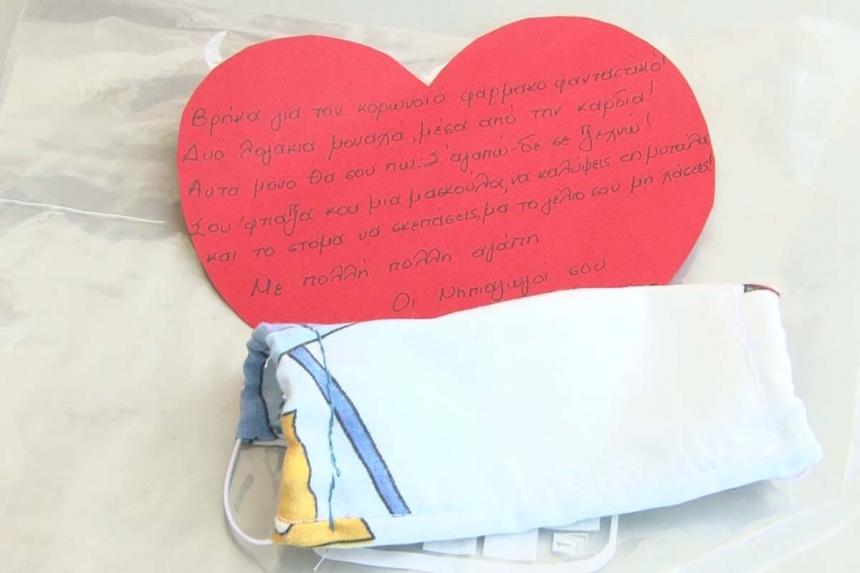 Βρήκα για τον κορωνοϊό φάρμακο φανταστικό!
Δυό λογάκια μοναχά, μέσα από την καρδιά!
Αυτά μόνο θα σου πω: Σ'αγαπώ-δε σε ξεχνώ!
Σου 'φτιαξα και μια μασκούλα, να καλύψεις τη μυτούλα
και το στόμα να σκεπάσεις, μα το γέλιο σου μη χάσεις!
Με πολλή πολλή αγάπη
Οι Νηπιαγωγοί σου